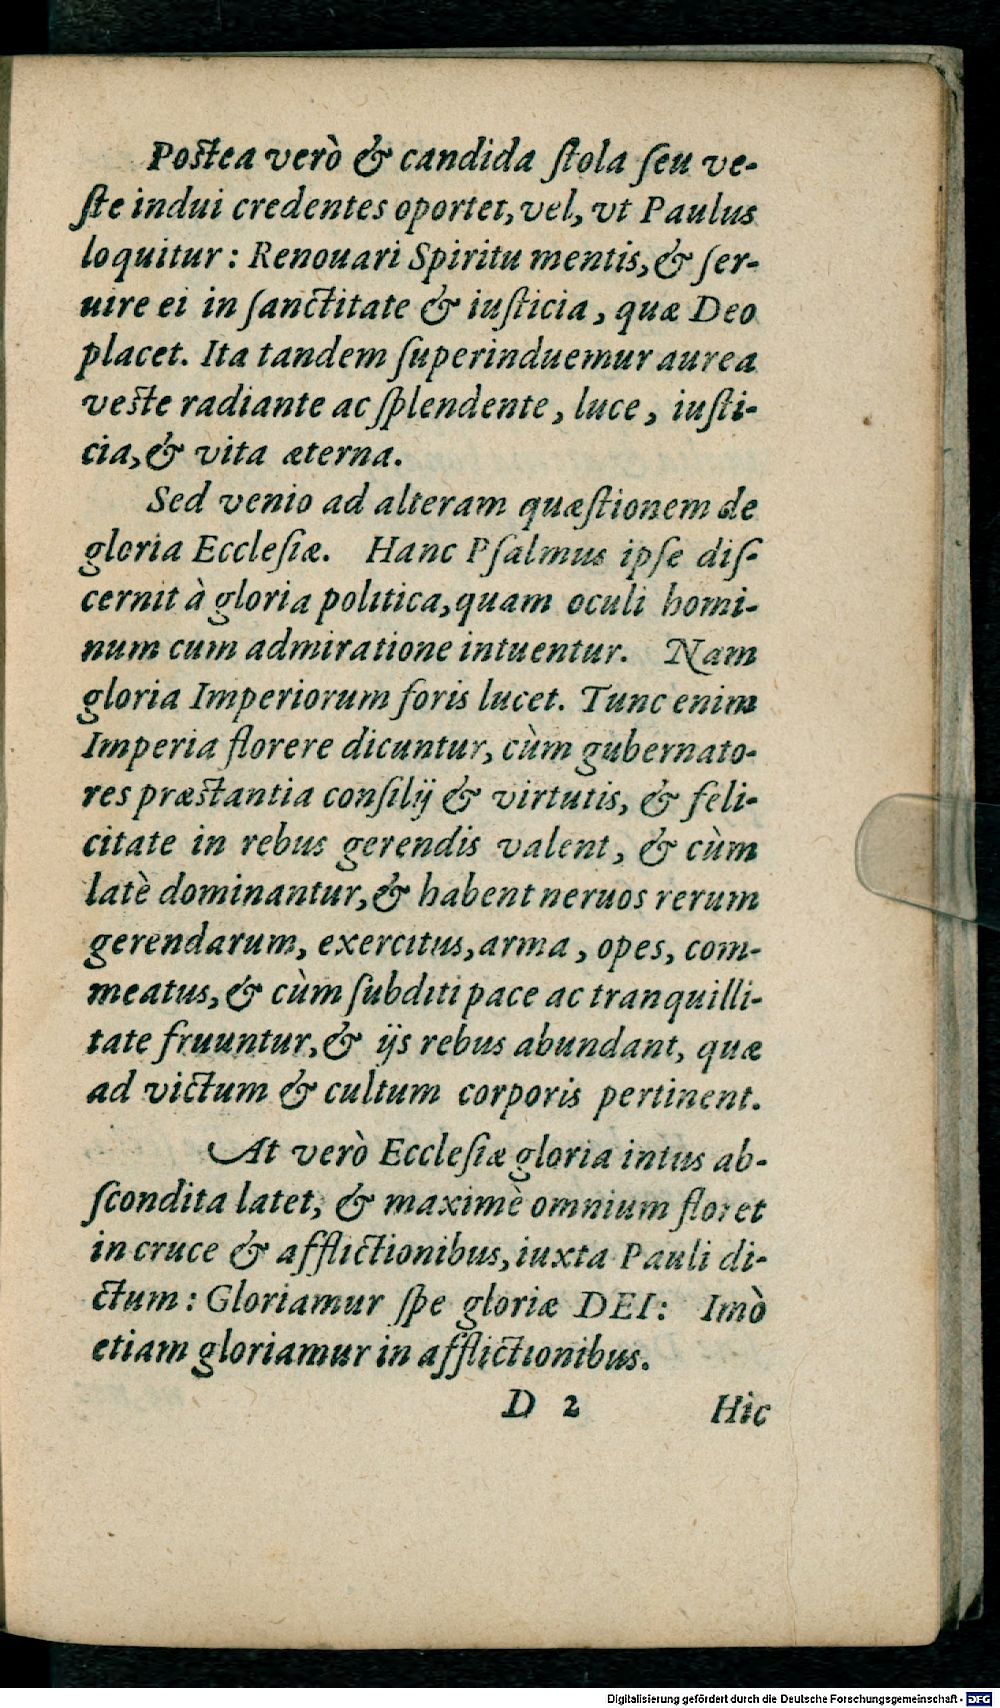 Postea verò & candida ſtola ſeu ve-
ſte indui credentes oportet, vel, vt Paulus
loquitur: Renouari Spiritu mentis, & ſer-
uire ei in ſanctitate & iuſticia, quæ Deo
placet. Ita tandem ſuperinduemur aurea
veste radiante ac ſplendente, luce, iuſti-
cia, & vita æterna.
Sed venio ad alteram quæſtionem de
gloria Eccleſiæ. Hanc Pſalmus ipſe diſ-
cernit à gloria politica, quam oculi homi-
num cum admiratione intuentur. Nam
gloria Imperiorum foris lucet. Tunc enim
Imperia florere dicuntur, cùm gubernato-
res præstantia conſilij & virtutis, & feli-
citate in rebus gerendis valent, & cùm
latè dominantur, & habent neruos rerum
gerendarum, exercitus, arma, opes, com-
meatus, & cùm ſubditi pace ac tranquilli-
tate fruuntur, & ijs rebus abundant, quæ
ad victum & cultum corporis pertinent.
At verò Eccleſiæ gloria intus ab-
ſcondita latet, & maximè omnium floret
in cruce & afflictionibus, iuxta Pauli di-
ctum: Gloriamur ſpe gloriæ DEI: Imò
etiam gloriamur in afflictionibus.
D 2 Hic
Digitalisierung gefördert durch die Deutsche Forschungsgemeinschaft - DFG